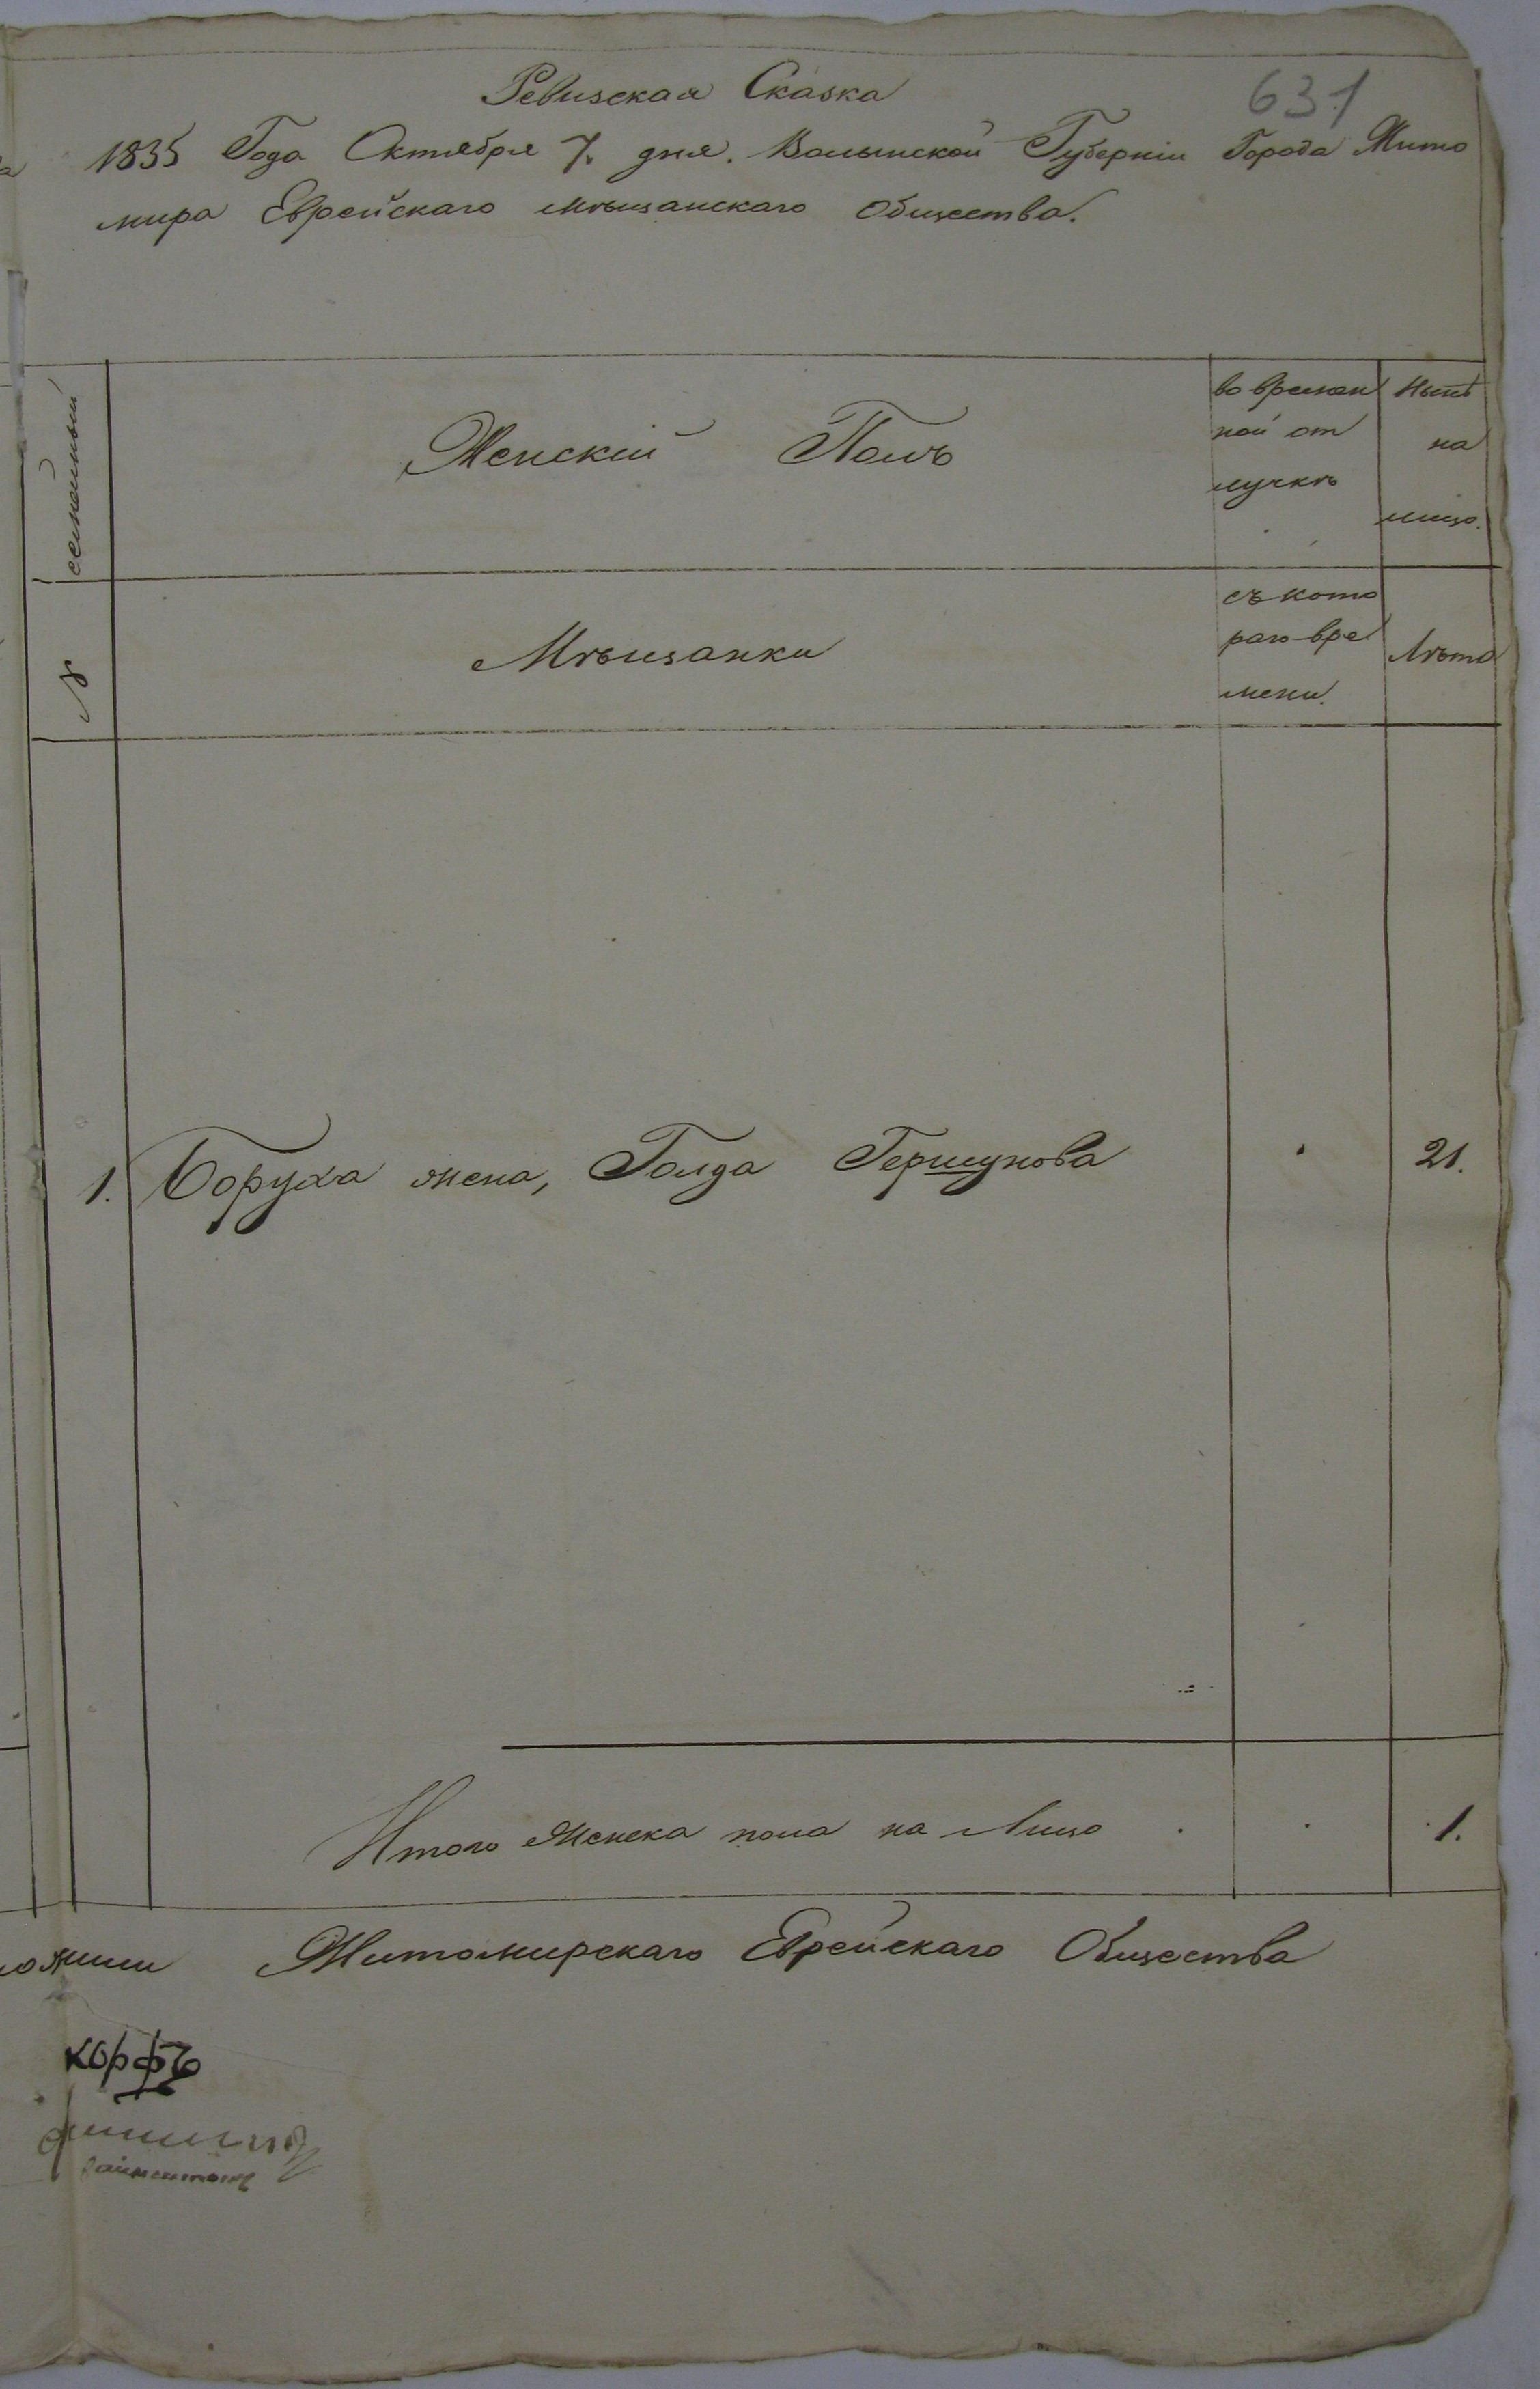 Ревизская Сказка
631
1835 Года Октября 7. дня. Волынской Губерніи Города Жито
мира Еврейскаго мѣщанскаго общества.
№ семейный
Женскій Полъ
во времен
ной от
лучкѣ
Нынѣ
на
лицо.
Мѣщанки
съ кото
раго вре
мени.
Лѣта
1. Боруха жена, Голда Гершунова 21.
Итого женска пола на Лицо 1.
Житомирскаго Еврейскаго Общества
корфъ